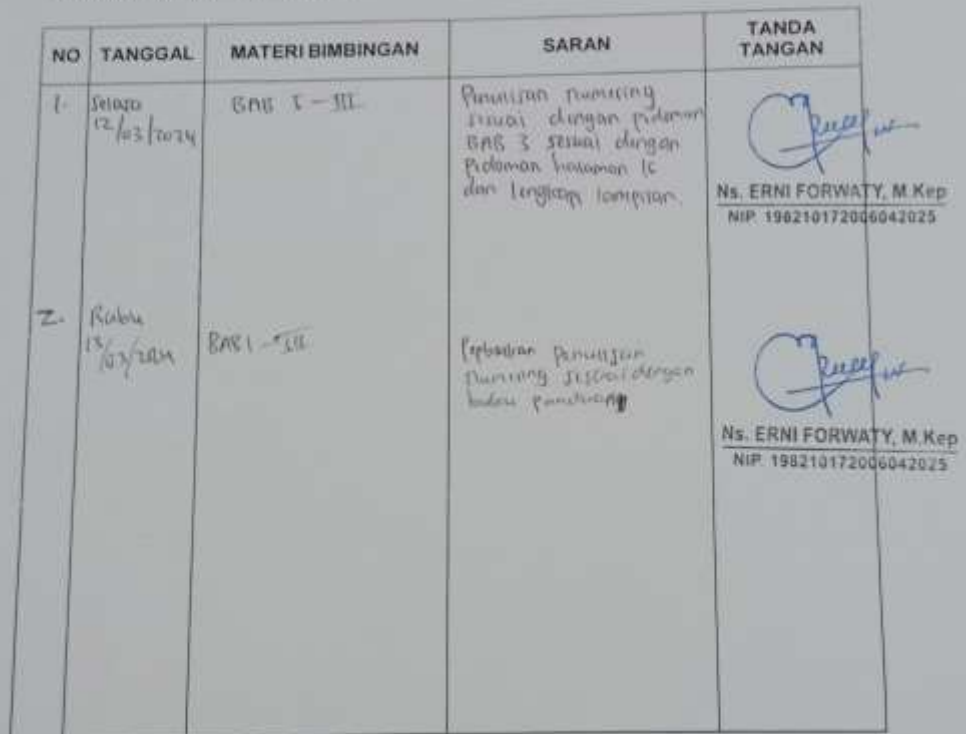 NO TANGGAL MATERI BIMBINGAN SARAN TANDA TANGAN
1. Selasa 12/03/2024
BAB I - III
Penulisan numering
sesuai dengan pidoman
BAB 3 sesuai dengan
Pidoman halaman 16
dan lengkapi lampiran
Ns. ERNI FORWATY, M.Kep
NIP. 198210172006042025
2. Rabu 13/03/2024
BAB I - III
Penulisan
numering sesuai dengan
Ns. ERNI FORWATY, M.Kep
NIP. 198210172006042025